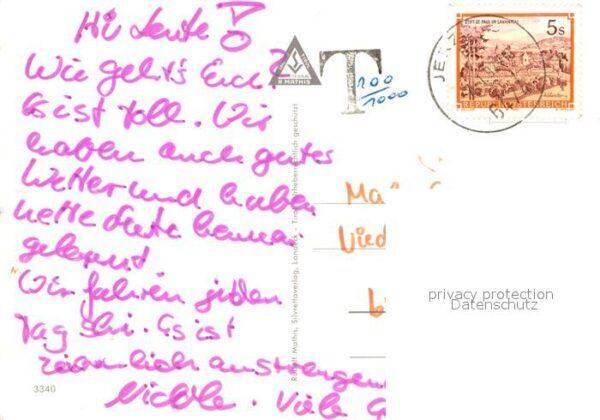 Hi Leute!
Wie geht's Euch?
Es ist toll. Wir
haben auch gutes
Wetter und haben
nette Leute kennen
gelernt
Wir fahren jeden
Tag Ski. Es ist
ziemlich anstrengend
Nicole. Viele G
3340
R. MATHIS
T
100
1000
Rudolf Mathis, Silvrettaverlag, Landeck - Tirol Urheberrechtlich geschützt
STIFT ST. PAUL IM LAVANTTAL
5s
REPUBLIK ÖSTERREICH
JERZ
Ma
privacy protection
Datenschutz